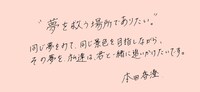 "夢を救う場所でありたい。"
同じ夢をみて、同じ景色を目指しながら、
その夢を加速は、君と一緒に追いかけたいです。
本田